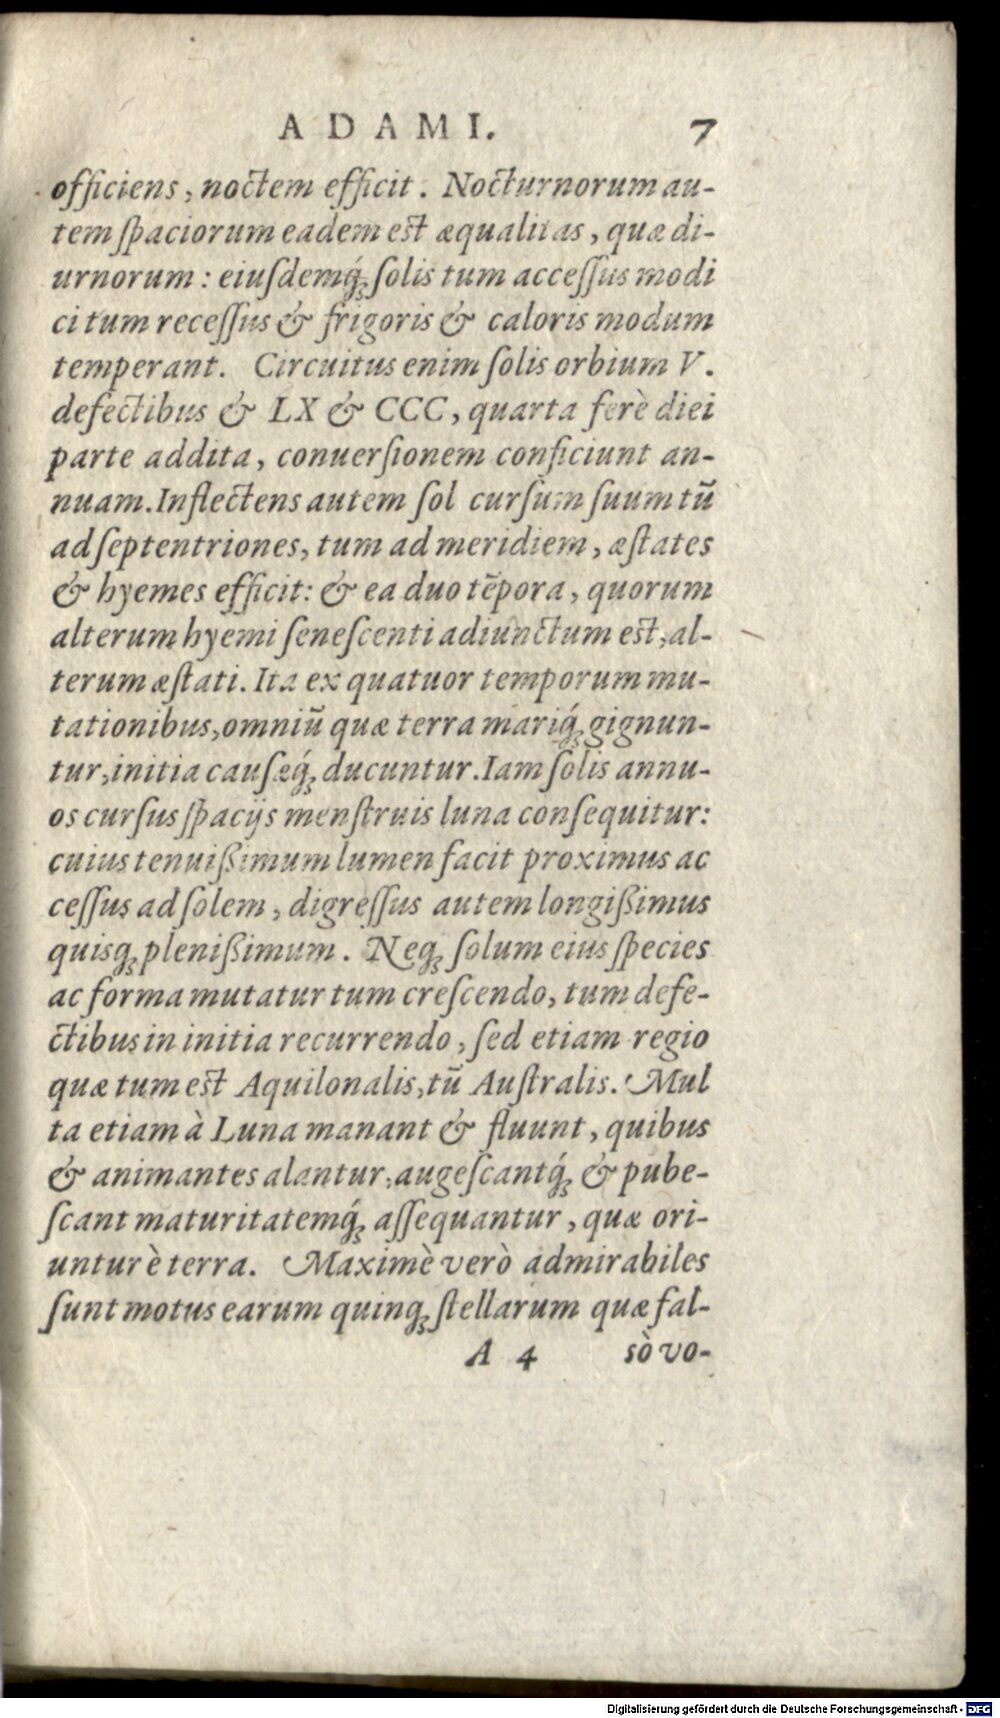 ADAMI. 7
officiens, noctem efficit. Nocturnorum au-
tem ſpaciorum eadem est æqualitas, quæ di-
urnorum: eiuſdemq́ꝫ ſolis tum acceſſus modi
ci tum receſſus & frigoris & caloris modum
temperant. Circuitus enim ſolis orbium V.
defectibus & LX & CCC, quarta ferè diei
parte addita, conuerſionem conficiunt an-
nuam. Inflectens autem ſol curſum ſuum tū
ad ſeptentriones, tum ad meridiem, æſtates
& hyemes efficit: & ea duo tēpora, quorum
alterum hyemi ſeneſcenti adiunctum est, al-
terum æſtati. Ita ex quatuor temporum mu-
tationibus, omniū quæ terra mariq́ꝫ gignun-
tur, initia cauſæq́ꝫ ducuntur. Iam ſolis annu-
os curſus ſpacijs menſtruis luna conſequitur:
cuius tenuißimum lumen facit proximus ac
ceſſus ad ſolem, digreſſus autem longißimus
quisqꝫ plenißimum. Neqꝫ ſolum eius ſpecies
ac forma mutatur tum creſcendo, tum defe-
ctibus in initia recurrendo, ſed etiam regio
quæ tum est Aquilonalis, tū Auſtralis. Mul
ta etiam à Luna manant & fluunt, quibus
& animantes alantur, augeſcantq́ꝫ & pube-
ſcant maturitatemq́ꝫ aſſequantur, quæ ori-
untur è terra. Maximè verò admirabiles
ſunt motus earum quinqꝫ ſtellarum quæ fal-
A 4 sò vo-
Digitalisierung gefördert durch die Deutsche Forschungsgemeinschaft - DFG